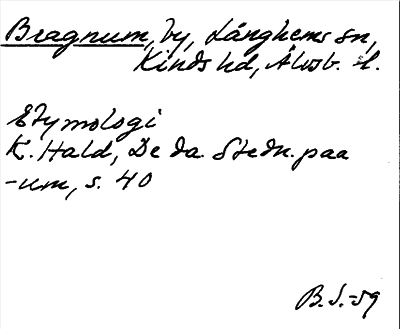 Bragnum, by, Långhems sn,
Kinds hd, Älvsb. l.
Etymologi
K. Hald, De da. Stedn. paa
-um, s. 40
B.S.-59